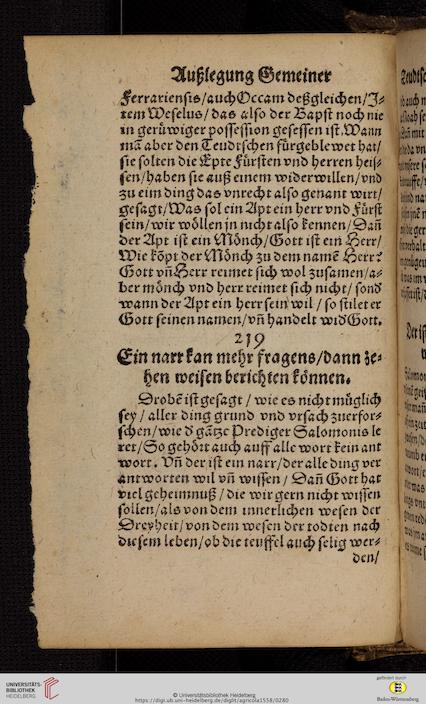 Außlegung Gemeiner
Ferrariensis/auch Occam deßgleichen/J-
tem Weselus/das also der Bapst noch nie
in gerüwiger possession gesessen ist. Wann
mā aber den Teudtschen fürgeblewet hat/
sie solten die Epte Fürsten vnd herren heis-
sen/haben sie auß einem widerwillen/vnd
zu eim ding das vnrecht also genant wirt/
gesagt/Was sol ein Apt ein herr vnd Fürst
sein/wir wöllen jn nicht also kennen/Dañ
der Apt ist ein Mönch/Gott ist ein Herr/
Wie kōpt der Mönch zu dem namē Herr?
Gott vñ Herr reimet sich wol zusamen/a-
ber mönch vnd herr reimet sich nicht/sond
wann der Apt ein herr sein wil/so stilet er
Gott seinen namen/vñ handelt wid Gott.
219
Ein narr kan mehr fragens/dann ze-
hen weisen berichten können.
Drobē ist gesagt/wie es nicht müglich
sey/aller ding grund vnd vrsach zuerfor-
schen/wie d gātze Prediger Salomonis le
ret/So gehört auch auff alle wort kein ant
wort. Vñ der ist ein narr/der alle ding ver
antworten wil vñ wissen/Dañ Gott hat
viel geheimnuß/die wir gern nicht wissen
sollen/als von dem innerlichen wesen der
Dreyheit/von dem wesen der todten nach
diesem leben/ob die teuffel auch selig wer-
den/
UNIVERSITÄTS-
BIBLIOTHEK
HEIDELBERG
© Universitätsbibliothek Heidelberg
https://digi.ub.uni-heidelberg.de/diglit/agricola1558/0280
gefördert durch
Baden-Württemberg